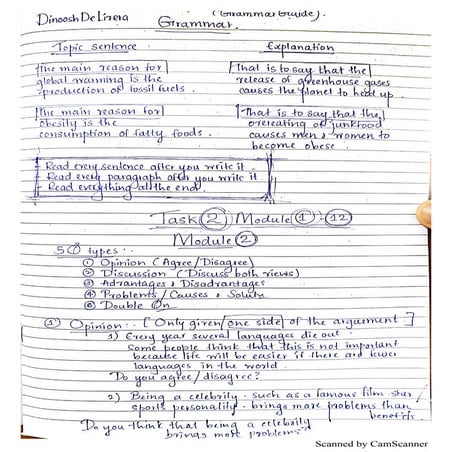 Dinoosh De Livera (Grammar Guide).
Grammar.
Topic sentence Explanation
The main reason for
global warming is the
production of fossil fuels.
That is to say that the
release of greenhouse gases
causes the planet to heat up.
The main reason for
obesity is the
consumption of fatty foods.
That is to say that the
overeating of junkfood
causes men & women to
become obese.
- Read every sentence after you write it
- Read every paragraph after you write it
- Read everything at the end.
Task 2 Module 1 - 12
Module 2
5 Q types :-
① Opinion (Agree/Disagree)
② Discussion (Discuss both views)
③ Advantages & Disadvantages
④ Problems / Causes & Solutn
⑤ Double Qn
① Opinion :- [Only given one side of the argument]
1) Every year several languages die out.
Some people think that this is not important
because life will be easier if there are fewer
languages in the world.
Do you agree/disagree?
2) Being a celebrity - such as a famous film star/
sports personality - brings more problems than
benefits.
Do you think that being a celebrity
brings more problems?
Scanned by CamScanner